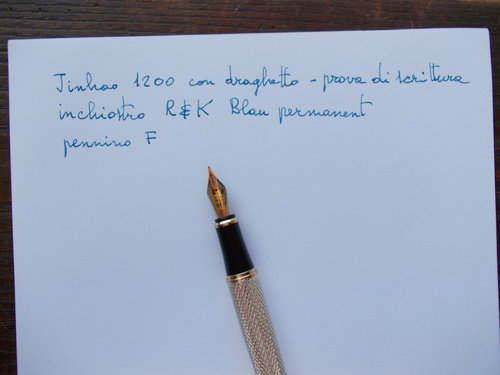 Jinhao 1200 con draghetto - prova di scrittura
inchiostro R&K Blau permanent
pennino F